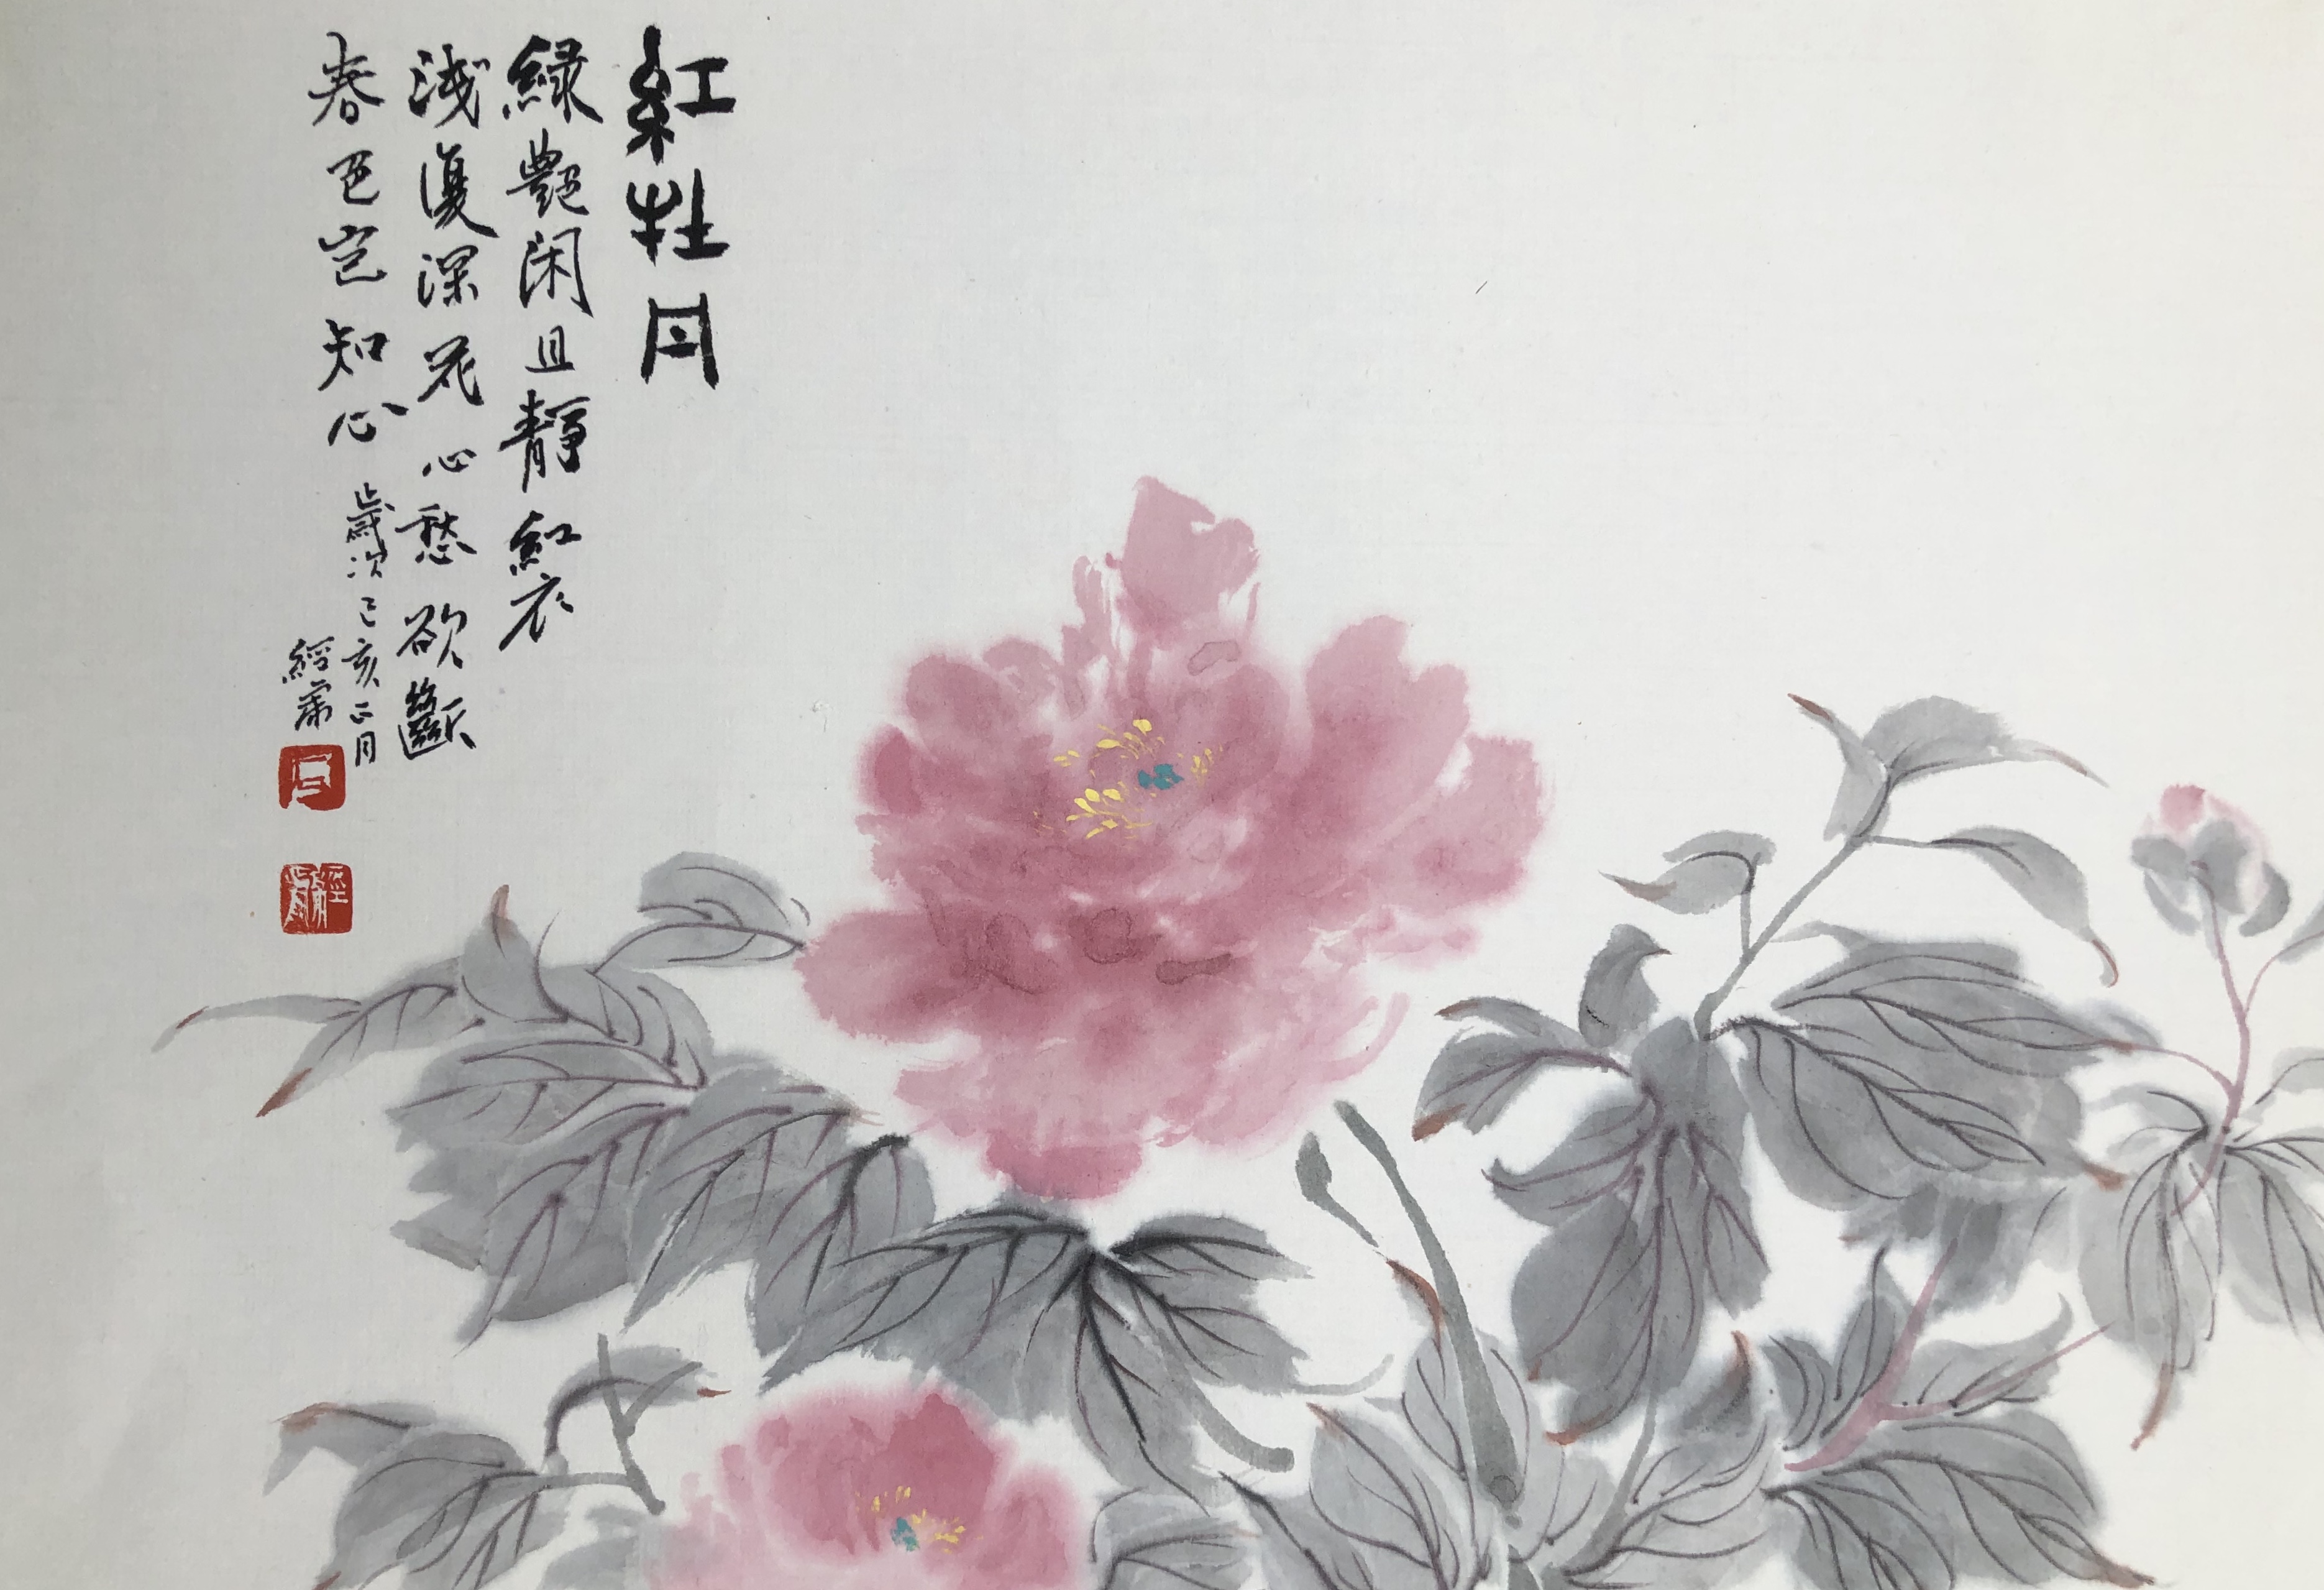 紅牡丹
緑艷闲且靜紅衣
淺復深花心愁欲斷
春色豈知心
歲次己亥正月
經